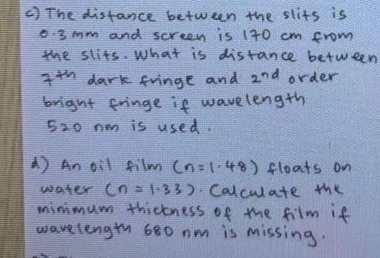 c) The distance between the slits is
0.3 mm and screen is 170 cm from
the slits. What is distance between
7th dark fringe and 2nd order
bright fringe if wavelength
520 nm is used.
d) An oil film (n=1.48) floats on
water (n=1.33). Calculate the
minimum thickness of the film if
wavelength 680 nm is missing.